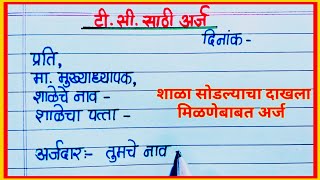 टी. सी. साठी अर्ज
दिनांक -
प्रति,
मा. मुख्याध्यापक,
शाळेचे नाव -
शाळेचा पत्ता -
शाळा सोडल्याचा दाखला
मिळणेबाबत अर्ज
अर्जदार:- तुमचे नाव